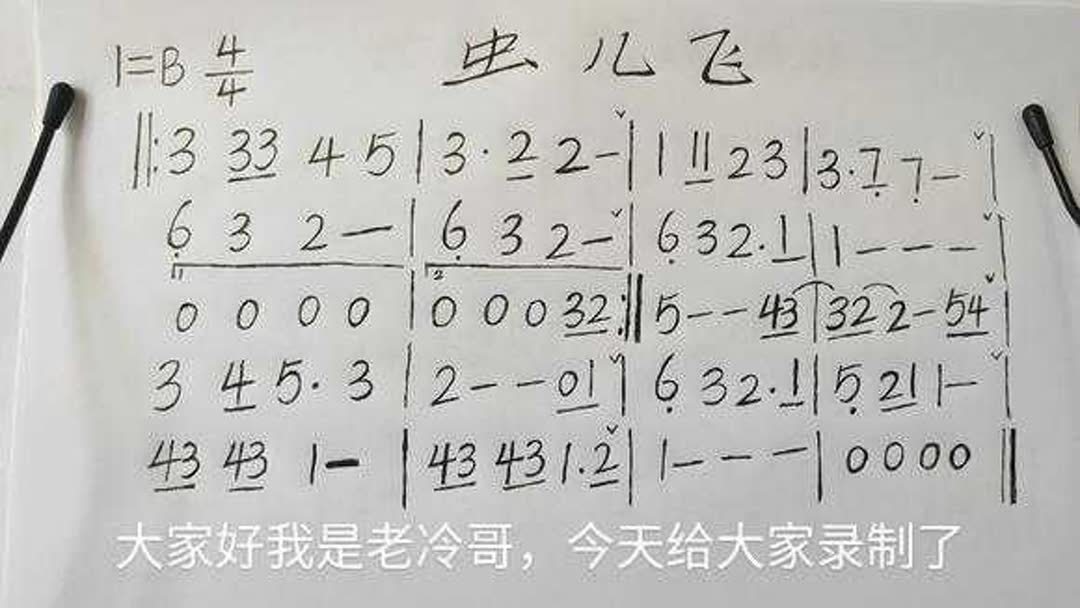 1=B 4/4 虫儿飞
‖: 3 33 4 5 | 3· 2 2 - ˇ| 1 11 2 3 | 3· 7̣ 7̣ - ˇ|
6̣ 3 2 — | 6̣ 3 2 - ˇ| 6̣ 3 2· 1 | 1 - - - ˇ|
1 2
0 0 0 0 | 0 0 0 32 :‖ 5 - - 43 | 32 2 - 54 ˇ|
3 4 5· 3 | 2 - - 01 ˇ| 6̣ 3 2· 1 | 5̣ 21 1 - ˇ|
43 43 1 - | 43 43 1· 2 ˇ| 1 - - - | 0 0 0 0 ‖
大家好我是老冷哥，今天给大家录制了